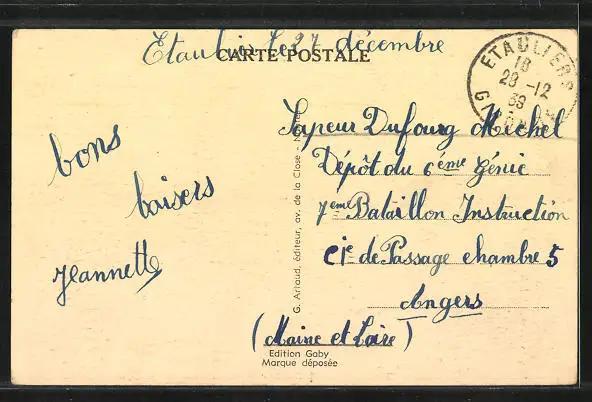 Etauliers le 27 décembre
CARTE POSTALE
ETAULIERS
18
28-12
39
bons
baisers
Jeannette
G. Artaud, éditeur, av. de la Close - Nantes
Sapeur Dufourg Michel
Dépôt du 6ème Génie
7ème Bataillon Instruction
Cie de Passage chambre 5
Angers
(Maine et Loire)
Edition Gaby
Marque déposée